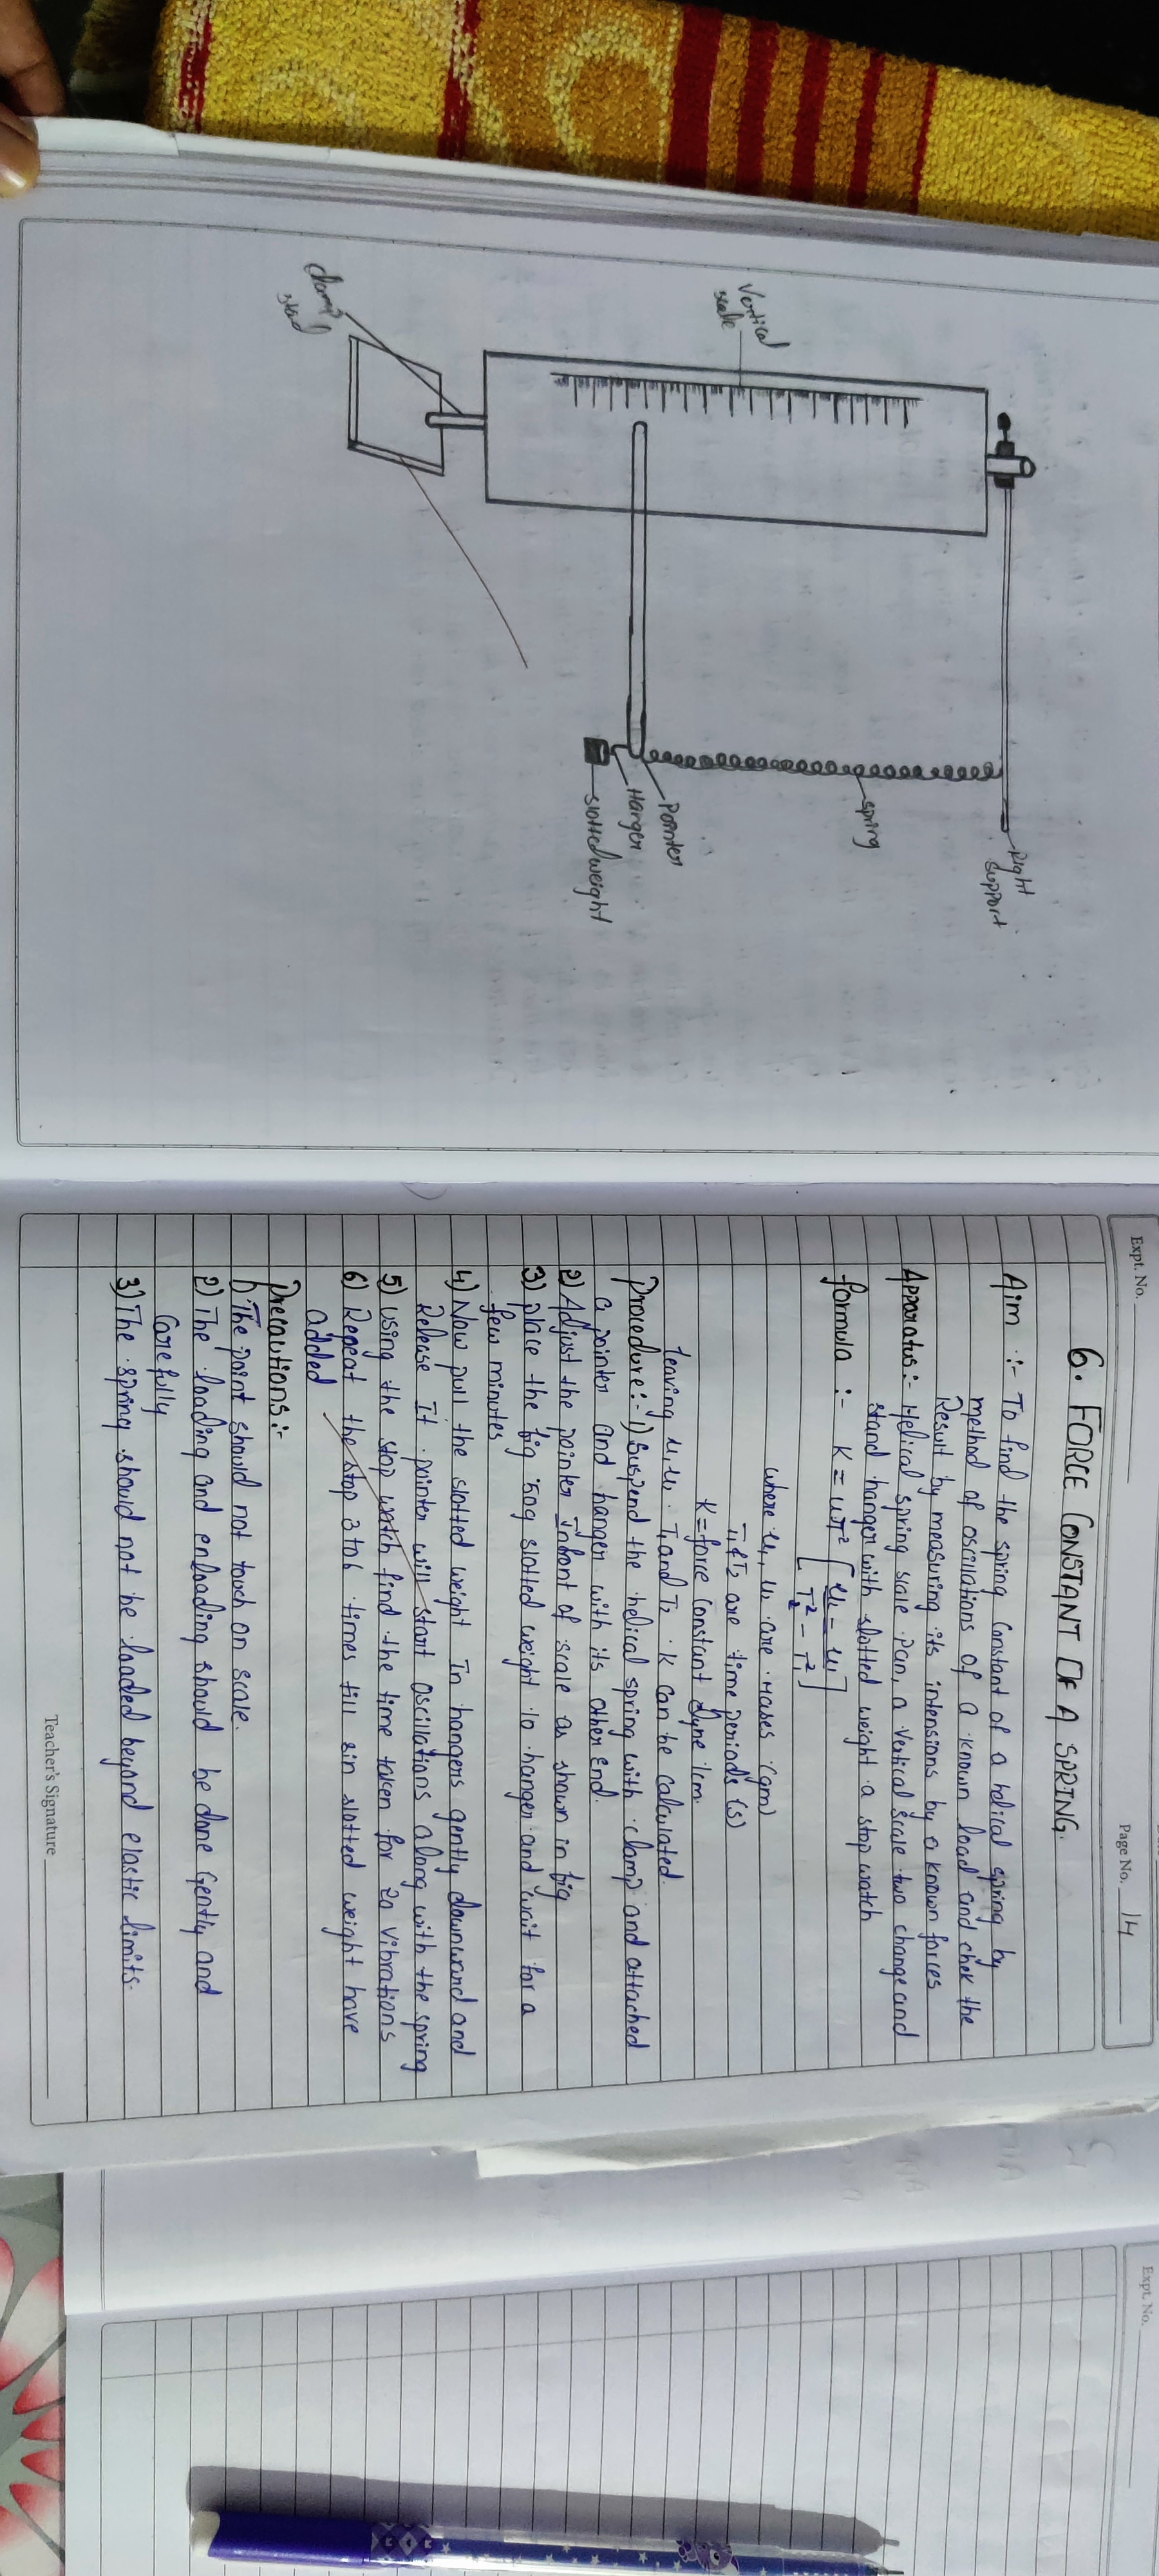 Vertical
scale
clamp
stand
Right
support
spring
Pointer
Hanger
slotted weight
Expt. No.
Page No. 14
6. FORCE CONSTANT OF A SPRING.
Aim :- To find the spring constant of a helical spring by
method of oscillations of a known load and chek the
Result by measuring its intensions by a known forces
Apparatus:- Helical spring scale pan, a vertical scale two change and
stand hanger with slotted weight a stop watch
formula :- K =
T₂² - T₁²
where are mases (gm)
T₁ & T₂ are time periods (s)
K = force constant dyne /cm.
T₁ and T₂ . K can be calculated.
Procedure:- 1) Suspend the helical spring with clamp and attached
a pointer and hanger with its other end.
2) Adjust the pointer Infront of scale as shown in fig
3) place the slotted weight to hanger and wait for a
few minutes
4) Now pull the slotted weight In hangers gently downward and
Release it pointer will start oscillations along with the spring
5) using the stop watch find the time taken for 20 vibrations
6) Repeat the stop 3 to 6 times till sin slotted weight have
added
Precautions:-
1) The point should not touch on scale.
2) The loading and enloading should be done Gently and
Carefully
3) The spring should not be loaded beyond elastic limits.
Teacher's Signature
Expt. No.